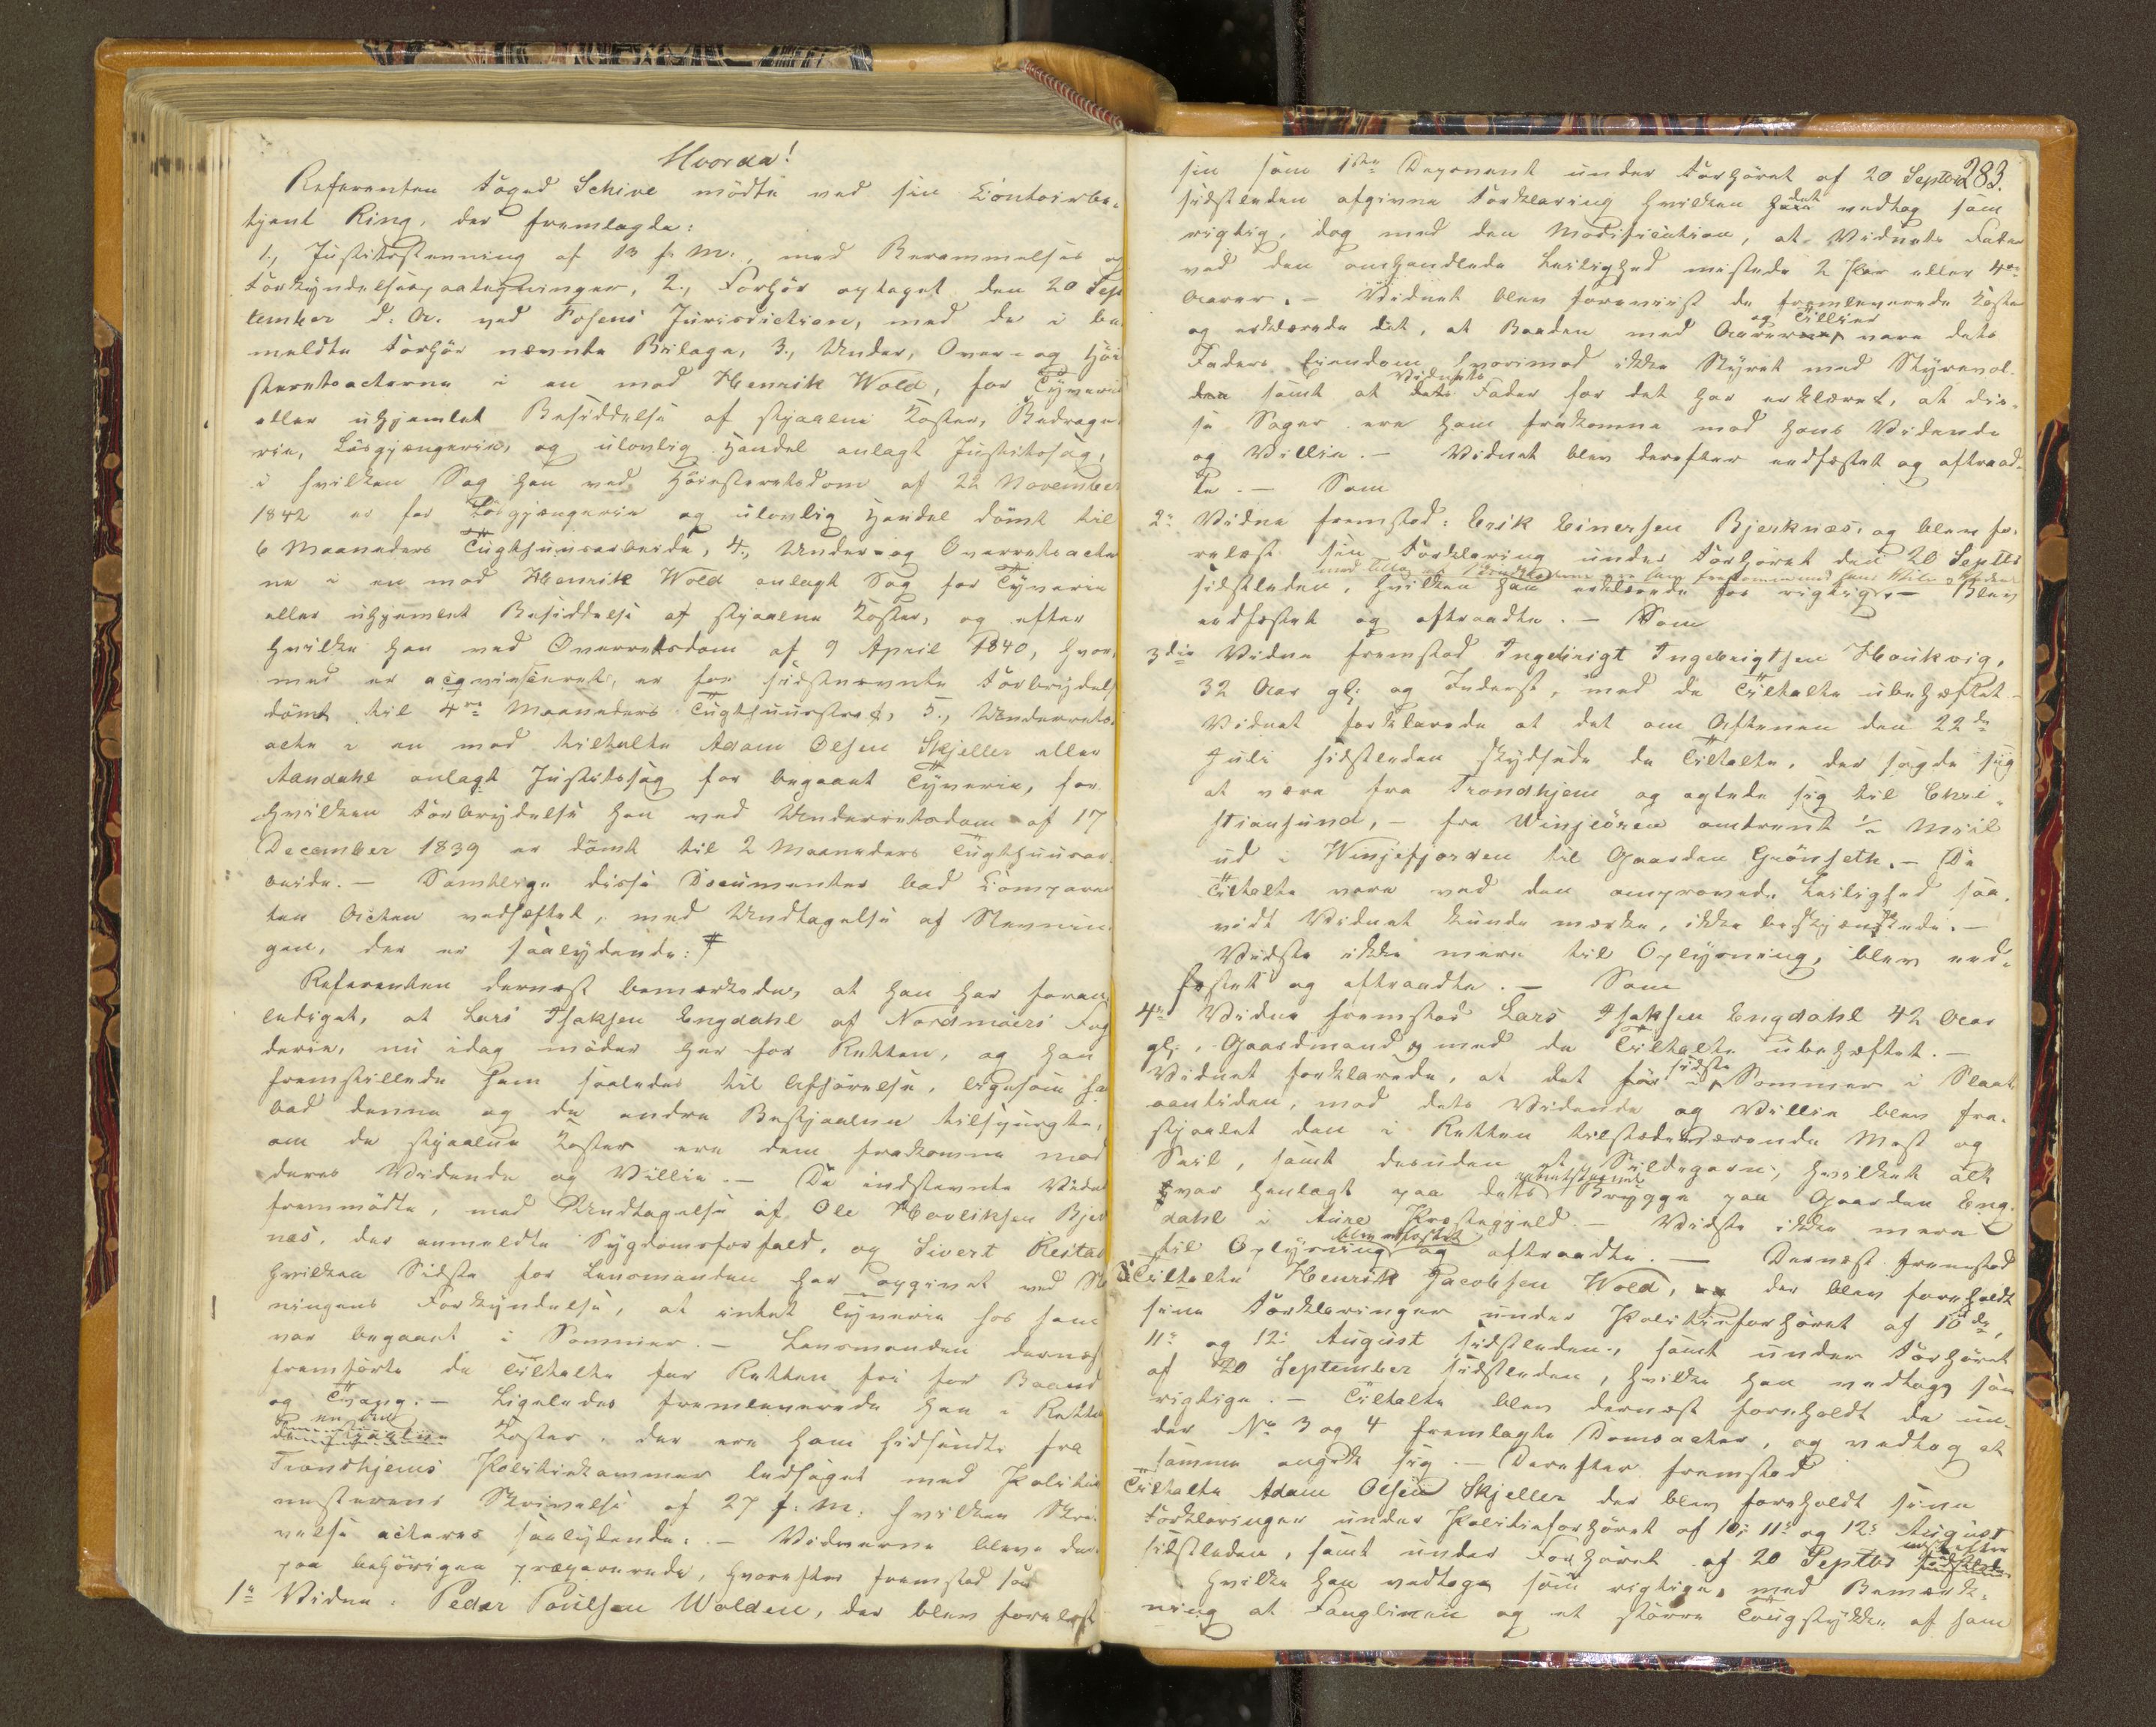 Hvorda!
Referenten Foged Schive mödte ved sin Contoirbe-
tjent Ring, der fremlagde:
1., Justitsstevning af 13 f. M., med Berammelses og
Forkyndelsespaategninger, 2., Forhör optaget den 20 Sep
tember d. A. ved Fosens Jurisdiction, med de i be-
meldte Forhör nævnte Bilage, 3., Under, Over- og Höi
steretsacterne i en mod Henrik Wold, for Tyverie
eller uhjemlet Besiddelse af stjaalne Koster, Bedrage-
rie, Lösgjængerie, og ulovlig Handel anlagt Justitssag,
i hvilken Sag han ved Höiesteretsdom af 22 November
1842 er for Lösgjængerie og ulovlig Handel dömt til
6 Maaneders Tugthuusarbeide, 4., Under- og Overretsacter
ne i en mod Henrik Wold anlagt Sag for Tyverie
eller uhjemlet Besiddelse af stjaalne Koster, og efter
hvilke han ved Overretsdom af 9 April 1840, hvor-
med er acqviesceret, er for sidstnævnte Forbrydelse
dömt til 4re Maaneders Tugthuusstraf, 5., Underrets-
acte i en mod tiltalte Adam Olsen Skjelle eller
Aandahl anlagt Justitssag for begaaet Tyverie, for
hvilken Forbrydelse han ved Underretsdom af 17
December 1839 er dömt til 2 Maaneders Tugthuusar-
beide. – Samtlige disse Documenter bad Comparen
ten Acten vedhæftet, med Undtagelse af Stevnin
gen, der er saalydende: #
Referenten dernæst bemærkede, at han har foran
lediget, at Lars Isaksen Engdahl af Nordmöers Fog
derie, nu idag möder her for Retten, og han
fremstillede ham saaledes til Afhörelse, ligesom han
bad denne og de andre Bestjaalne tilspurgte,
om de stjaalne Koster ere dem frakomne mod
deres Vidende og Villie. – De indstevnte Vidner
fremmödte, med Undtagelse af Ole Havliksen Bjerk
næs, der anmeldte Sygdomsforfald, og Sivert Reitan
hvilken Sidste for Lensmanden har opgivet ved Ste
ningens Forkyndelse, at intet Tyverie hos ham
var begaaet i Sommer. – Lensmanden dernæst
fremförte de Tiltalte for Retten fri for Baand
og Tvang. – Ligeledes fremleverede han i Retten
en Deel
de stjaalne Koster, der ere ham tilsendte fra
Trondhjems Politiekammer ledsaget med Politie
mesterens Skrivelse af 27 f. M. hvilken Skri-
velse acteres saalydende: – Vidnerne bleve der-
paa behörigen præparerede, hvorefter fremstod som
1te Vidne: Peder Poulsen Wolden, der blev forelæst
283.
sin som 1ste Deponent under Forhöret af 20 Septbr
sidstleden afgivne Forklaring hvilken det vedtog som
rigtig, dog med den Modification, at Vidnets Fader
ved den omhandlede Leilighed mistede 2 Par eller 4re
Aarer. – Vidnet blev foreviist de fremleverede Koster
og Tillier
og erklærede det, at Baaden med Aarer vare dets
Faders Eiendom, hvorimod ikke Styret med Styrevol-
Vidnets
den samt at dets Fader for det har erklæret, at dis-
se Sager ere ham frakomne mod hans Vidende
og Villie. – Vidnet blev derefter eedfæstet og aftraad-
te. – Som
2t Vidne fremstod: Erik Einersen Bjerknæs, og blev fo-
relæst sin Forklaring under Forhöret den 20 Septbr
sidstleden, hvilken han erklærede for rigtig. – Blev
eedfæstet og aftraadte. – Som
3die Vidne fremstod Ingebrigt Ingebrigtsen Haukvig,
32 Aar gl. og Inderst, med de Tiltalte ubehæftet –
Vidnet forklarede at det om Aftenen den 22de
Juli sidstleden skydsede de Tiltalte, der sagde sig
at være fra Trondhjem og agtede sig til Chri-
stiansund, – fra Winjeören omtrent ½ Miil
ud i Winjefjorden til Gaarden Grönseth. – De
Tiltalte vare ved den omprovede Leilighed saa-
vidt Vidnet kunde mærke, ikke beskjænkede. –
Vidste ikke mere til Oplysning, blev eed-
fæstet og aftraadte. – Som
4de Vidne fremstod Lars Isaksen Engdahl 42 Aar
gl., Gaardmand og med de Tiltalte ubehæftet. –
sidste
Vidnet forklarede, at det för i Sommer i Slaat-
aantiden, mod dets Vidende og Villie blev fra-
stjaalet den i Retten tilstedeværende Mast og
Seil, samt desuden et Sildegarn, hvilket alt
var henlagt paa dets Brygge paa Gaarden Eng-
dahl i Aure Præstegjeld. – Vidste ikke mere
blev eedfæstet
til Oplysning og aftraadte. – Dernæst fremstod
Tiltalte Henrik Jacobsen Wold, der blev foreholdt
sine Forklaringer under Politieforhöret af 10de,
11te og 12te August sidstleden, samt under Forhöret
af 20 September sidstleden, hvilke han vedtog som
rigtige. – Tiltalte blev dernæst foreholdt de un-
der No 3 og 4 fremlagte Domsacter, og vedtog at
samme angik sig. – Derefter fremstod
Tiltalte Adam Olsen Skjelle der blev foreholdt sine
Forklaringer under Politieforhöret af 10, 11te og 12te August
sidstleden, samt under Forhöret af 20 Septbr
hvilke han vedtoges som rigtige, med Bemærk-
ning at Fanglinen og et större Tougstykke af ham